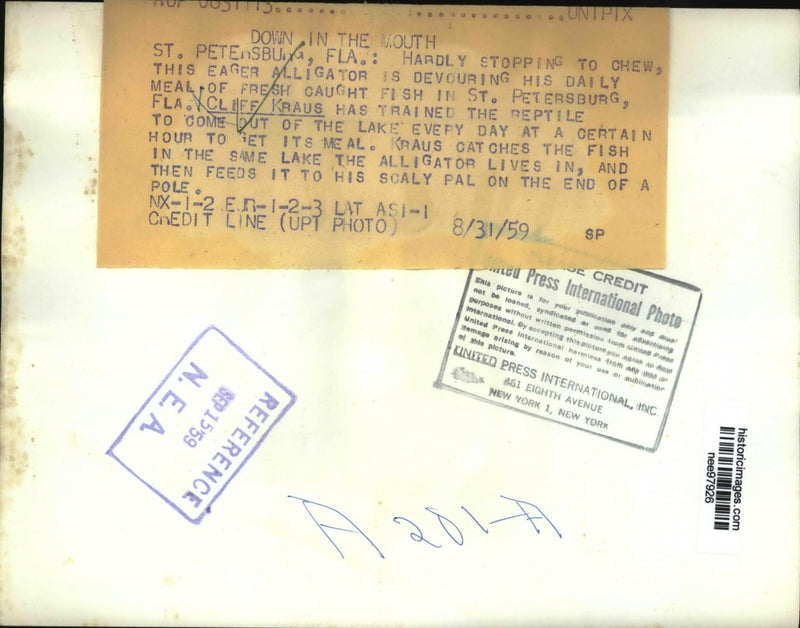 UNIPIX
DOWN IN THE MOUTH
ST. PETERSBURG, FLA.: HARDLY STOPPING TO CHEW,
THIS EAGER ALLIGATOR IS DEVOURING HIS DAILY
MEAL OF FRESH CAUGHT FISH IN ST. PETERSBURG,
FLA. CLIFF KRAUS HAS TRAINED THE REPTILE
TO COME OUT OF THE LAKE EVERY DAY AT A CERTAIN
HOUR TO GET ITS MEAL. KRAUS CATCHES THE FISH
IN THE SAME LAKE THE ALLIGATOR LIVES IN, AND
THEN FEEDS IT TO HIS SCALY PAL ON THE END OF A
POLE.
NX-1-2 EUR-1-2-3 LAT AS1-1
CREDIT LINE (UPI PHOTO) 8/31/59 SP
CREDIT
United Press International Photo
This picture is for your publication only and must
not be loaned, syndicated or used for advertising
purposes without written permission from United Press
International. By accepting this picture you agree to hold
United Press International harmless from any loss or
damage arising by reason of your use or publication
of this picture.
UNITED PRESS INTERNATIONAL, INC.
461 EIGHTH AVENUE
NEW YORK 1, NEW YORK
REFERENCE
SEP 15 59
N.E.A.
A 201-A
historicimages.com
nee97926